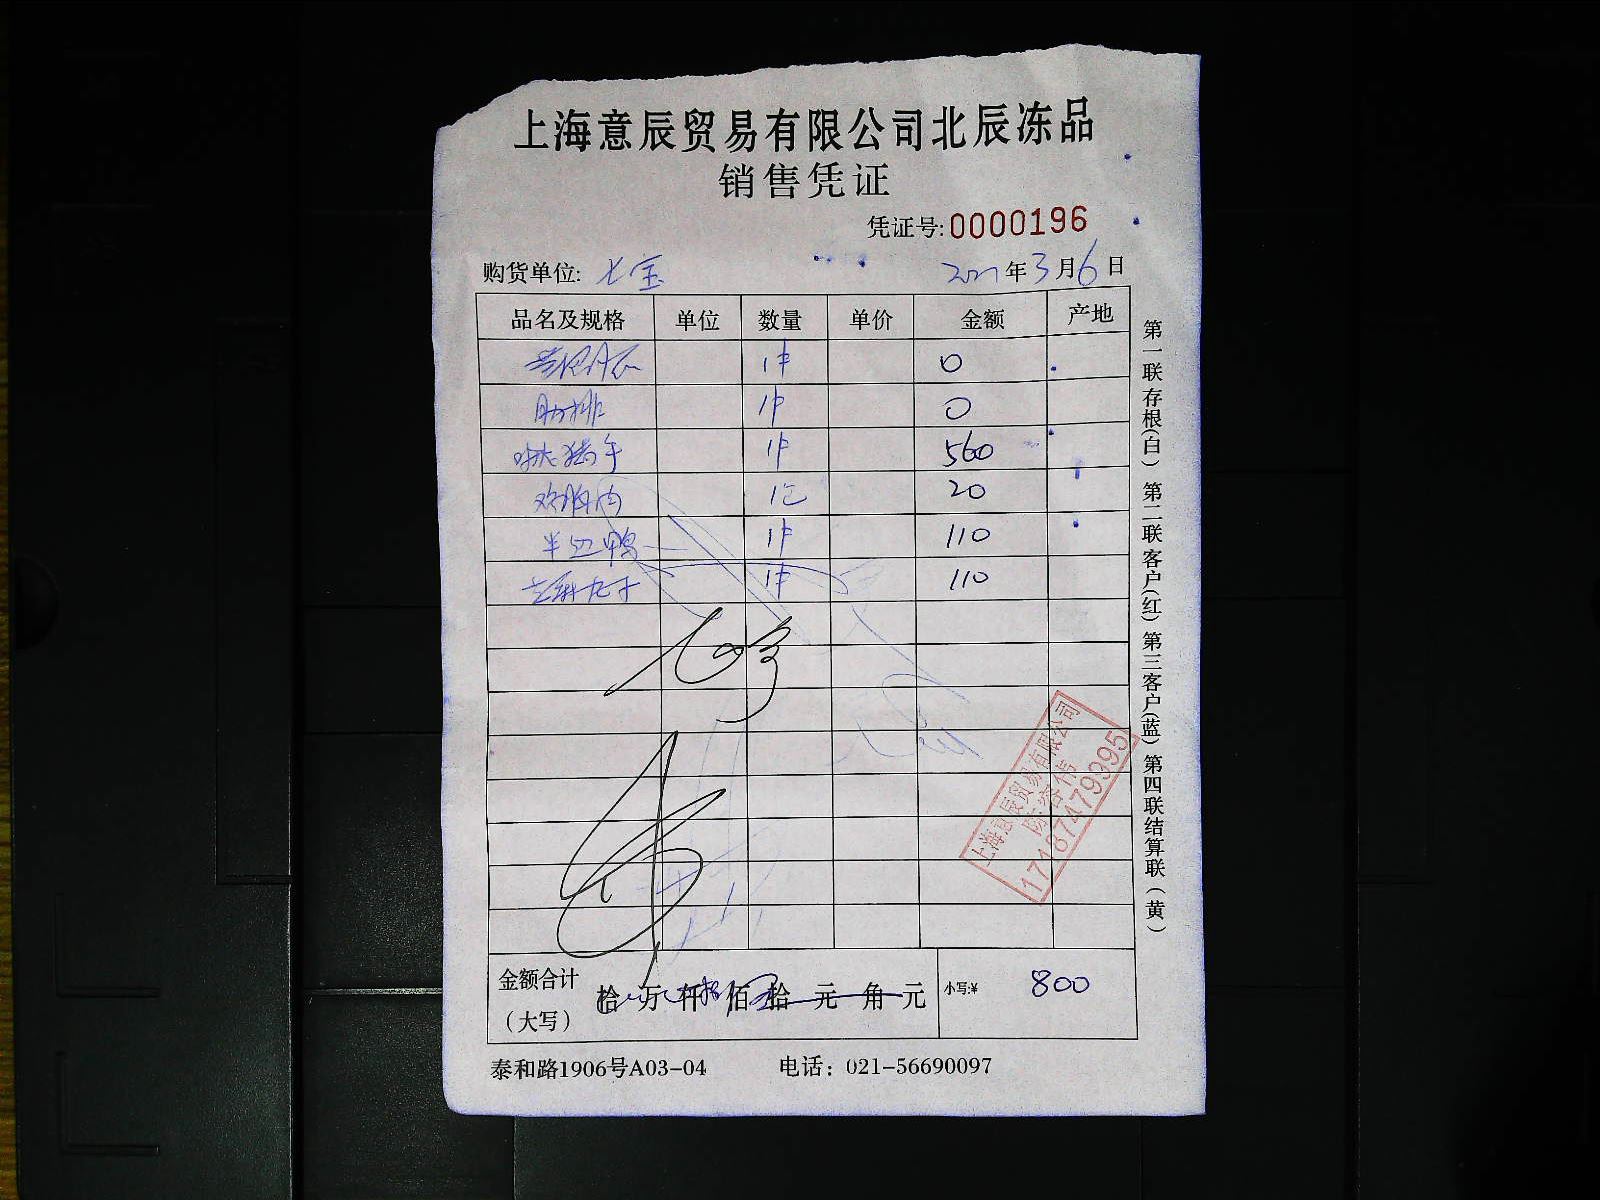 上海意辰贸易有限公司北辰冻品
销售凭证
凭证号:0000196
购货单位: 七宝 2021年3月6日
品名及规格 单位 数量 单价 金额 产地
1件 0
肋排 1件 0
猪手 1件 560
鸡胸肉 1包 20
半边鸭 1件 110
1件 110
金额合计
(大写)
拾 万 仟 佰 拾 元 角 元 小写:¥ 800
泰和路1906号A03-04 电话: 021-56690097
第一联存根(白) 第二联客户(红) 第三客户(蓝) 第四联结算联(黄)
上海意辰贸易有限公司
17187479395